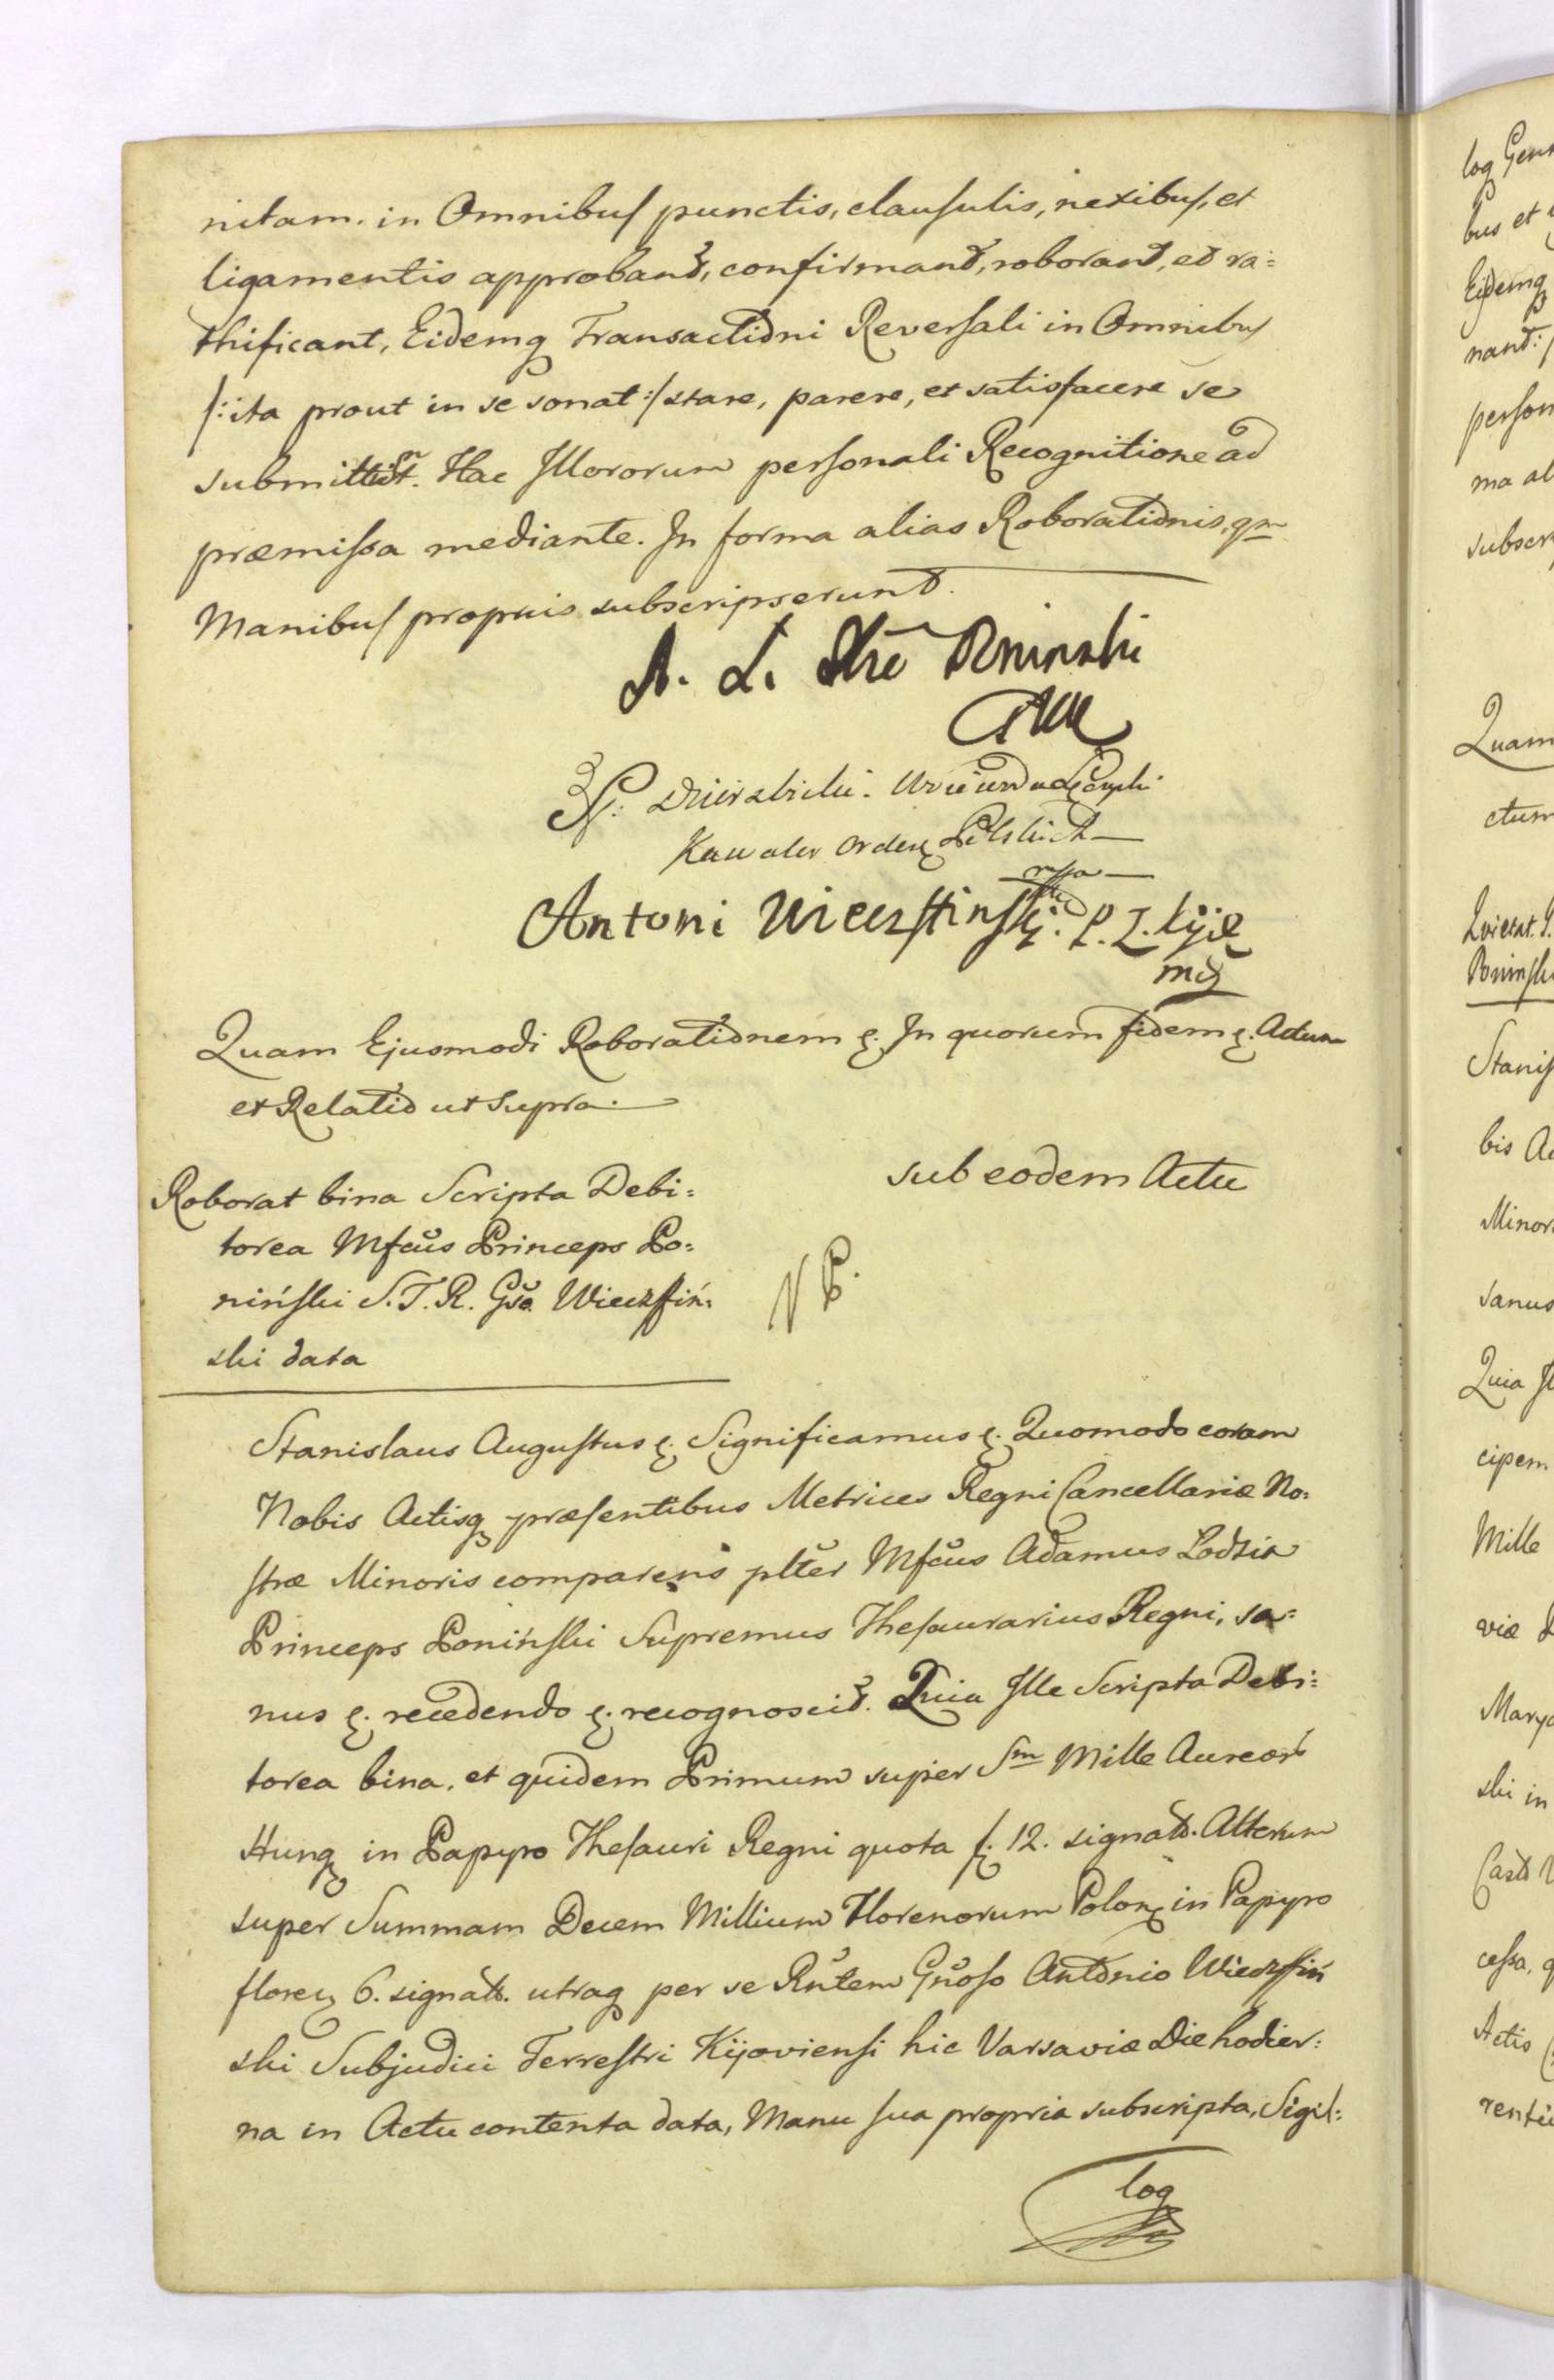 nitam. in Omnibus punctis, clausulis, nexibus, et
ligamentis approbant, confirmant, roborant, et ra=
thificant, Eidemq Transactioni Reversali in Omnibus
/:ita prout in se sonat:/ stare, parere, et satisfacere se
submittunt. Hac Illororum personali Recognitione ad
præmissa mediante. In forma alias Roborationis, qm
Manibus propriis subscripserunt.
A. L. Xże Poninski
Kawaler Orderu Polskich
mpa
Antoni Wieczffinski. P. Z. Kijo
mp
Quam Ejusmodi Roborationem &. In quorum fidem &. Actum
et Relatio ut supra.
sub eodem Actu
Roborat bina Scripta Debi=
torea Mfcus Princeps Po=
niński S.T.R. Gso Wieczffiń=
ski data
Stanislaus Augustus &. Significamus &. Quomodo coram
Nobis Actisq præsentibus Metrices Regni Cancellariæ No=
stræ Minoris comparens plter Mfcus Adamus Lodzia
Princeps Poniński Supremus Thesaurarius Regni, sa=
nus &. recedendo &. recognoscit. Quia Ille Scripta Debi=
torea bina, et quidem Primum super Sm Mille Aureor
Hung in Papyro Thesauri Regni quota f. 12. signato. Alterum
super Summam Decem Millium Florenorum Polon in Papyro
floren 6. signato. utraq per se Rntem Gnoso Antonio Wieczffiń
ski Subjudici Terrestri Kijoviensi hic Varsaviæ Die hodier=
na in Actu contenta data, Manu sua propria subscripta, Sigil=
log
log
bus et
Eidemq
nant:
person
ma al
subscr
Quam
ctum
Quietat.
Poninski
Stanis
bis Ac
Minor
sanus
Quia Il
cipem
Mille
viæ
ski in
cessa, q
Actis